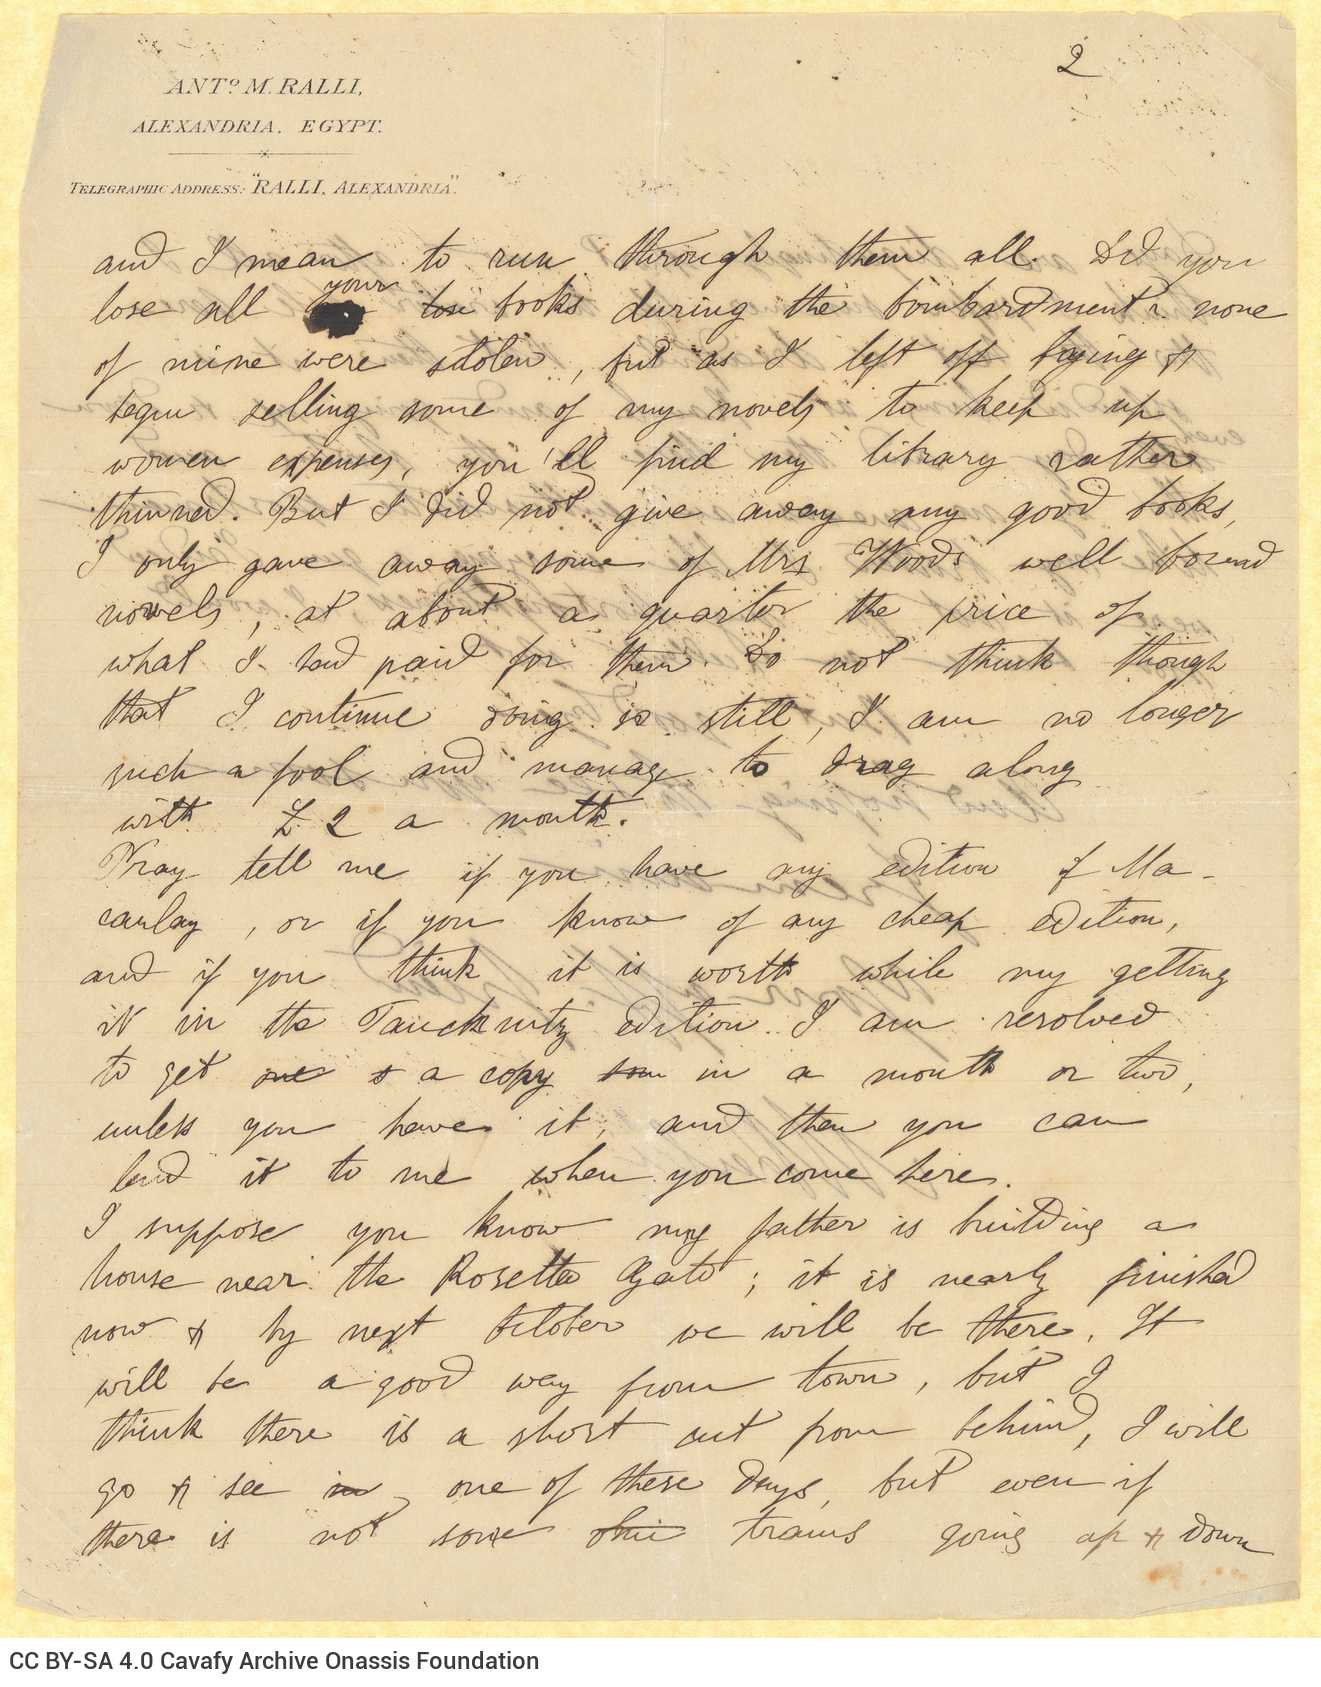 2
ANTº M. RALLI,
ALEXANDRIA. EGYPT.
TELEGRAPHIC ADDRESS: "RALLI, ALEXANDRIA".
and I mean to run through them all. Did you
your
lose all los books during the bombardment? none
of mine were stolen, but as I left off buying &
begun selling some of my novels to keep up
women expenses, you'll find my library rather
thinned. But I did not give away any good books,
I only gave away some of Mrs Woods well bound
novels, at about a quarter the price of
what I had paid for them. Do not think though
that I continue doing so still, I am no longer
such a fool and manage to drag along
with £ 2 a month.
Pray tell me if you have any edition of Ma-
caulay, or if you know of any cheap edition,
and if you think it is worth while my getting
it in the Tauchnitz edition. I am resolved
to get one a copy som in a month or two,
unless you have it, and then you can
lend it to me when you come here.
I suppose you know my father is building a
house near the Rosetta Gate; it is nearly finished
now & by next October we will be there. It
will be a good way from town, but I
think there is a short cut from behind, I will
go & see in one of these days, but even if
there is not some trams going up & down
CC BY-SA 4.0 Cavafy Archive Onassis Foundation